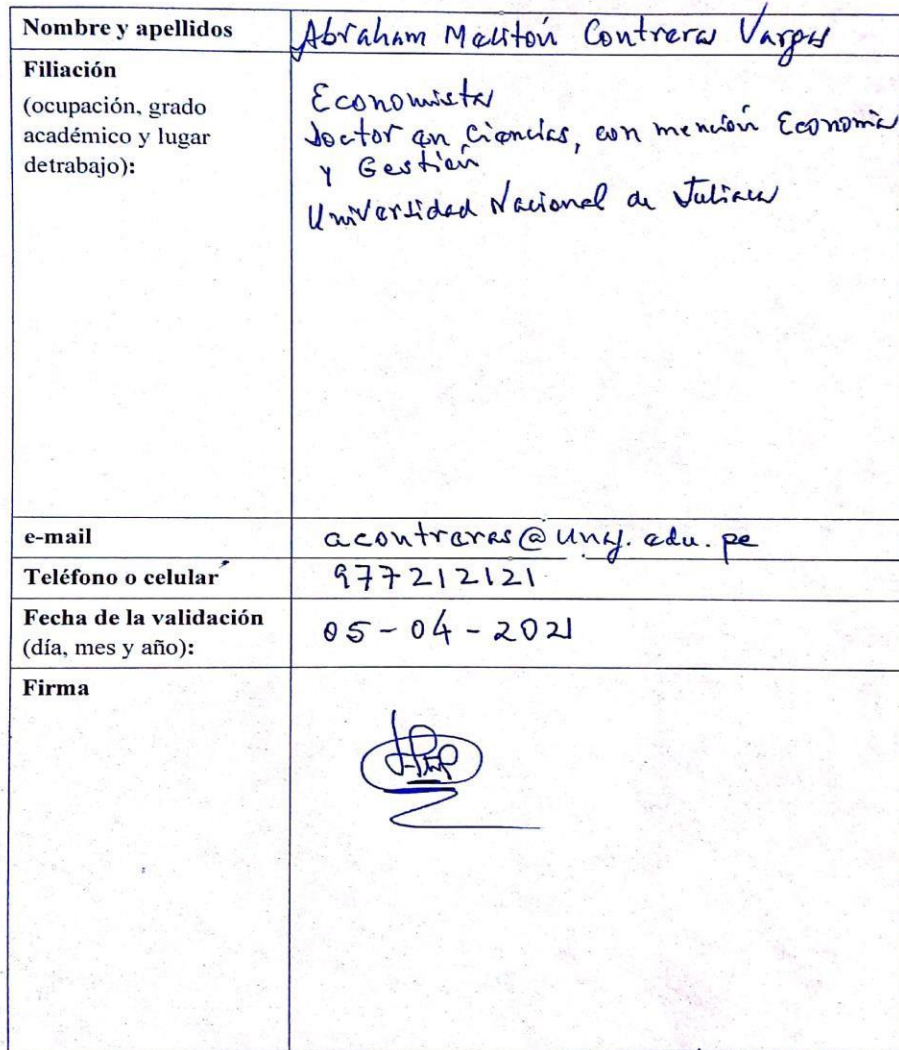 Nombre y apellidos Abraham Melitón Contreras Vargas
Filiación
(ocupación, grado
académico y lugar
detrabajo):
Economista
Doctor en Ciencias, con mención Economía
y Gestión
Universidad Nacional de Juliaca
e-mail acontreras@unaj.edu.pe
Teléfono o celular 977212121
Fecha de la validación
(día, mes y año):
05-04-2021
Firma